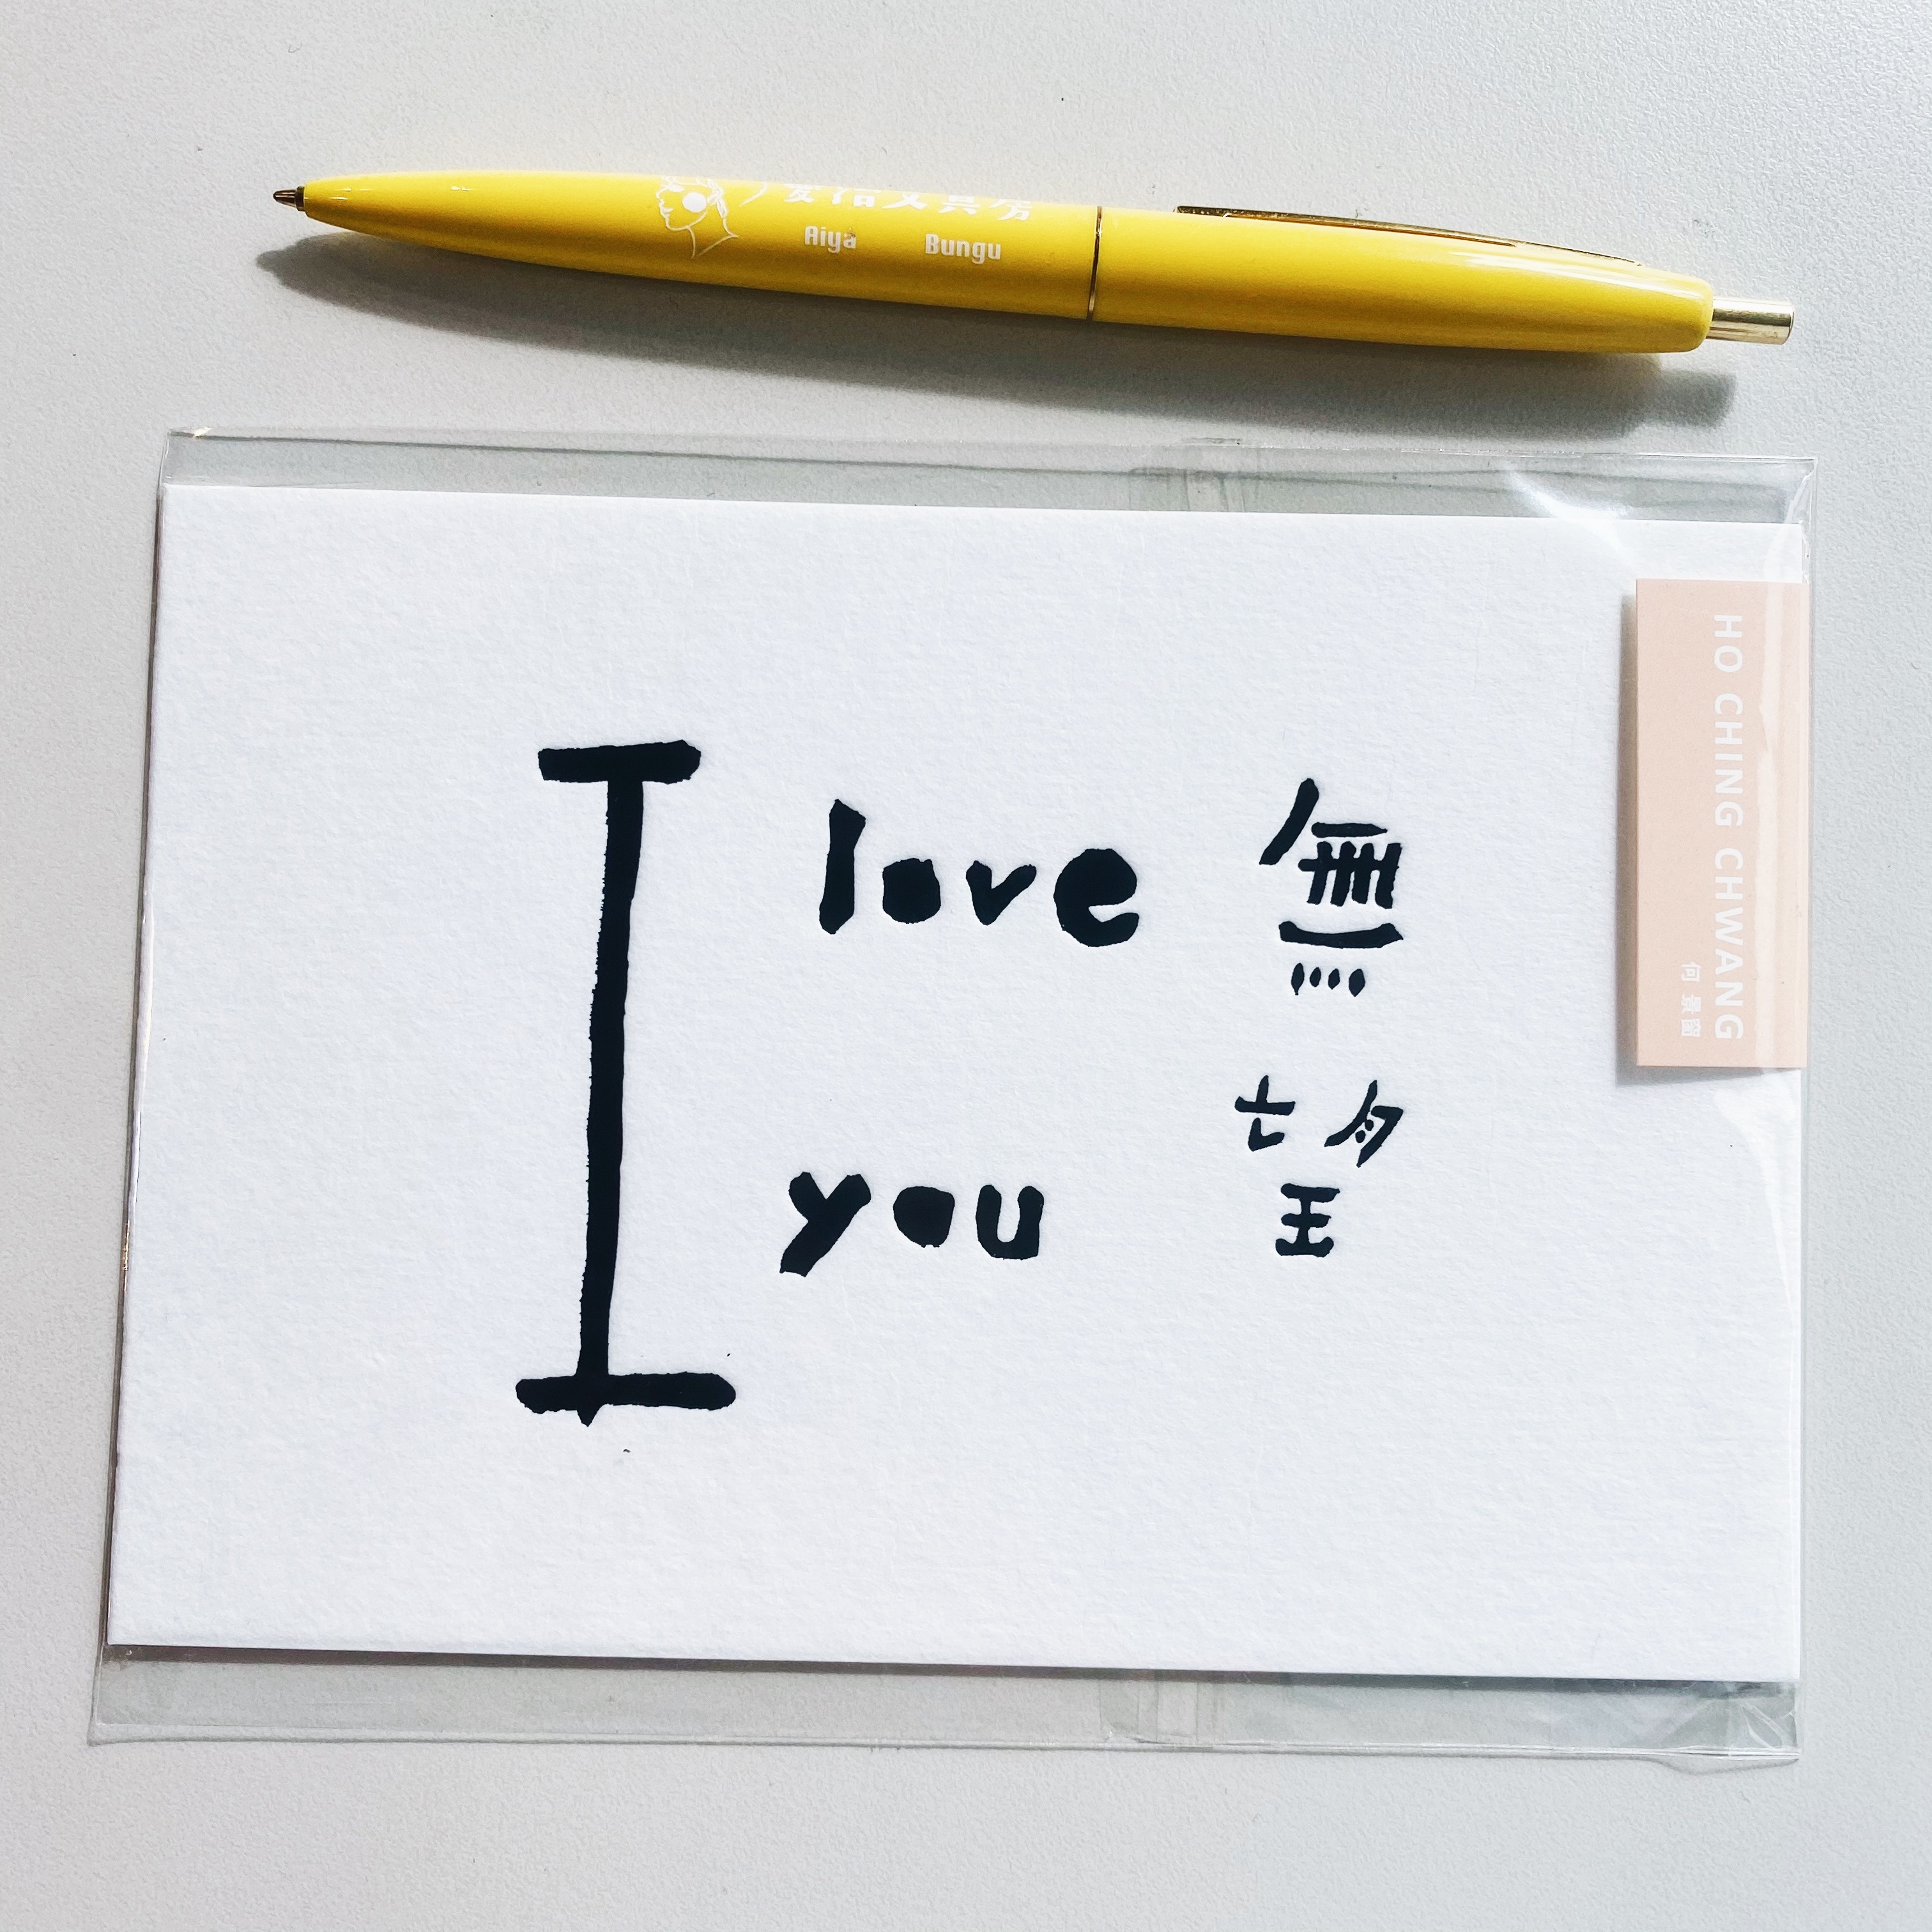 Aiya Bungu
I love you
無望
HO CHING CHWANG
何景窗